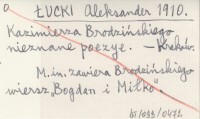 ŁUCKI Aleksander 1910.
Kazimierza Brodzińskiego
nieznane poezye. — Kraków.
M.in. zawiera Brodzińskiego
wiersz „Bogdan i Milko".
br/099/0471